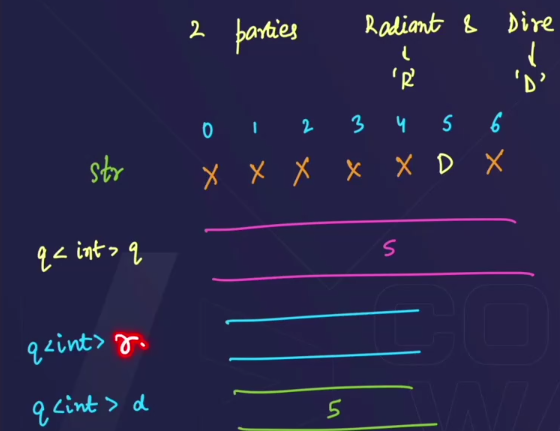 2 parties Radiant & Dire
'R' 'D'
0 1 2 3 4 5 6
str X X X X X D X
q<int> q 5
q<int> r.
q<int> d 5
CO
W